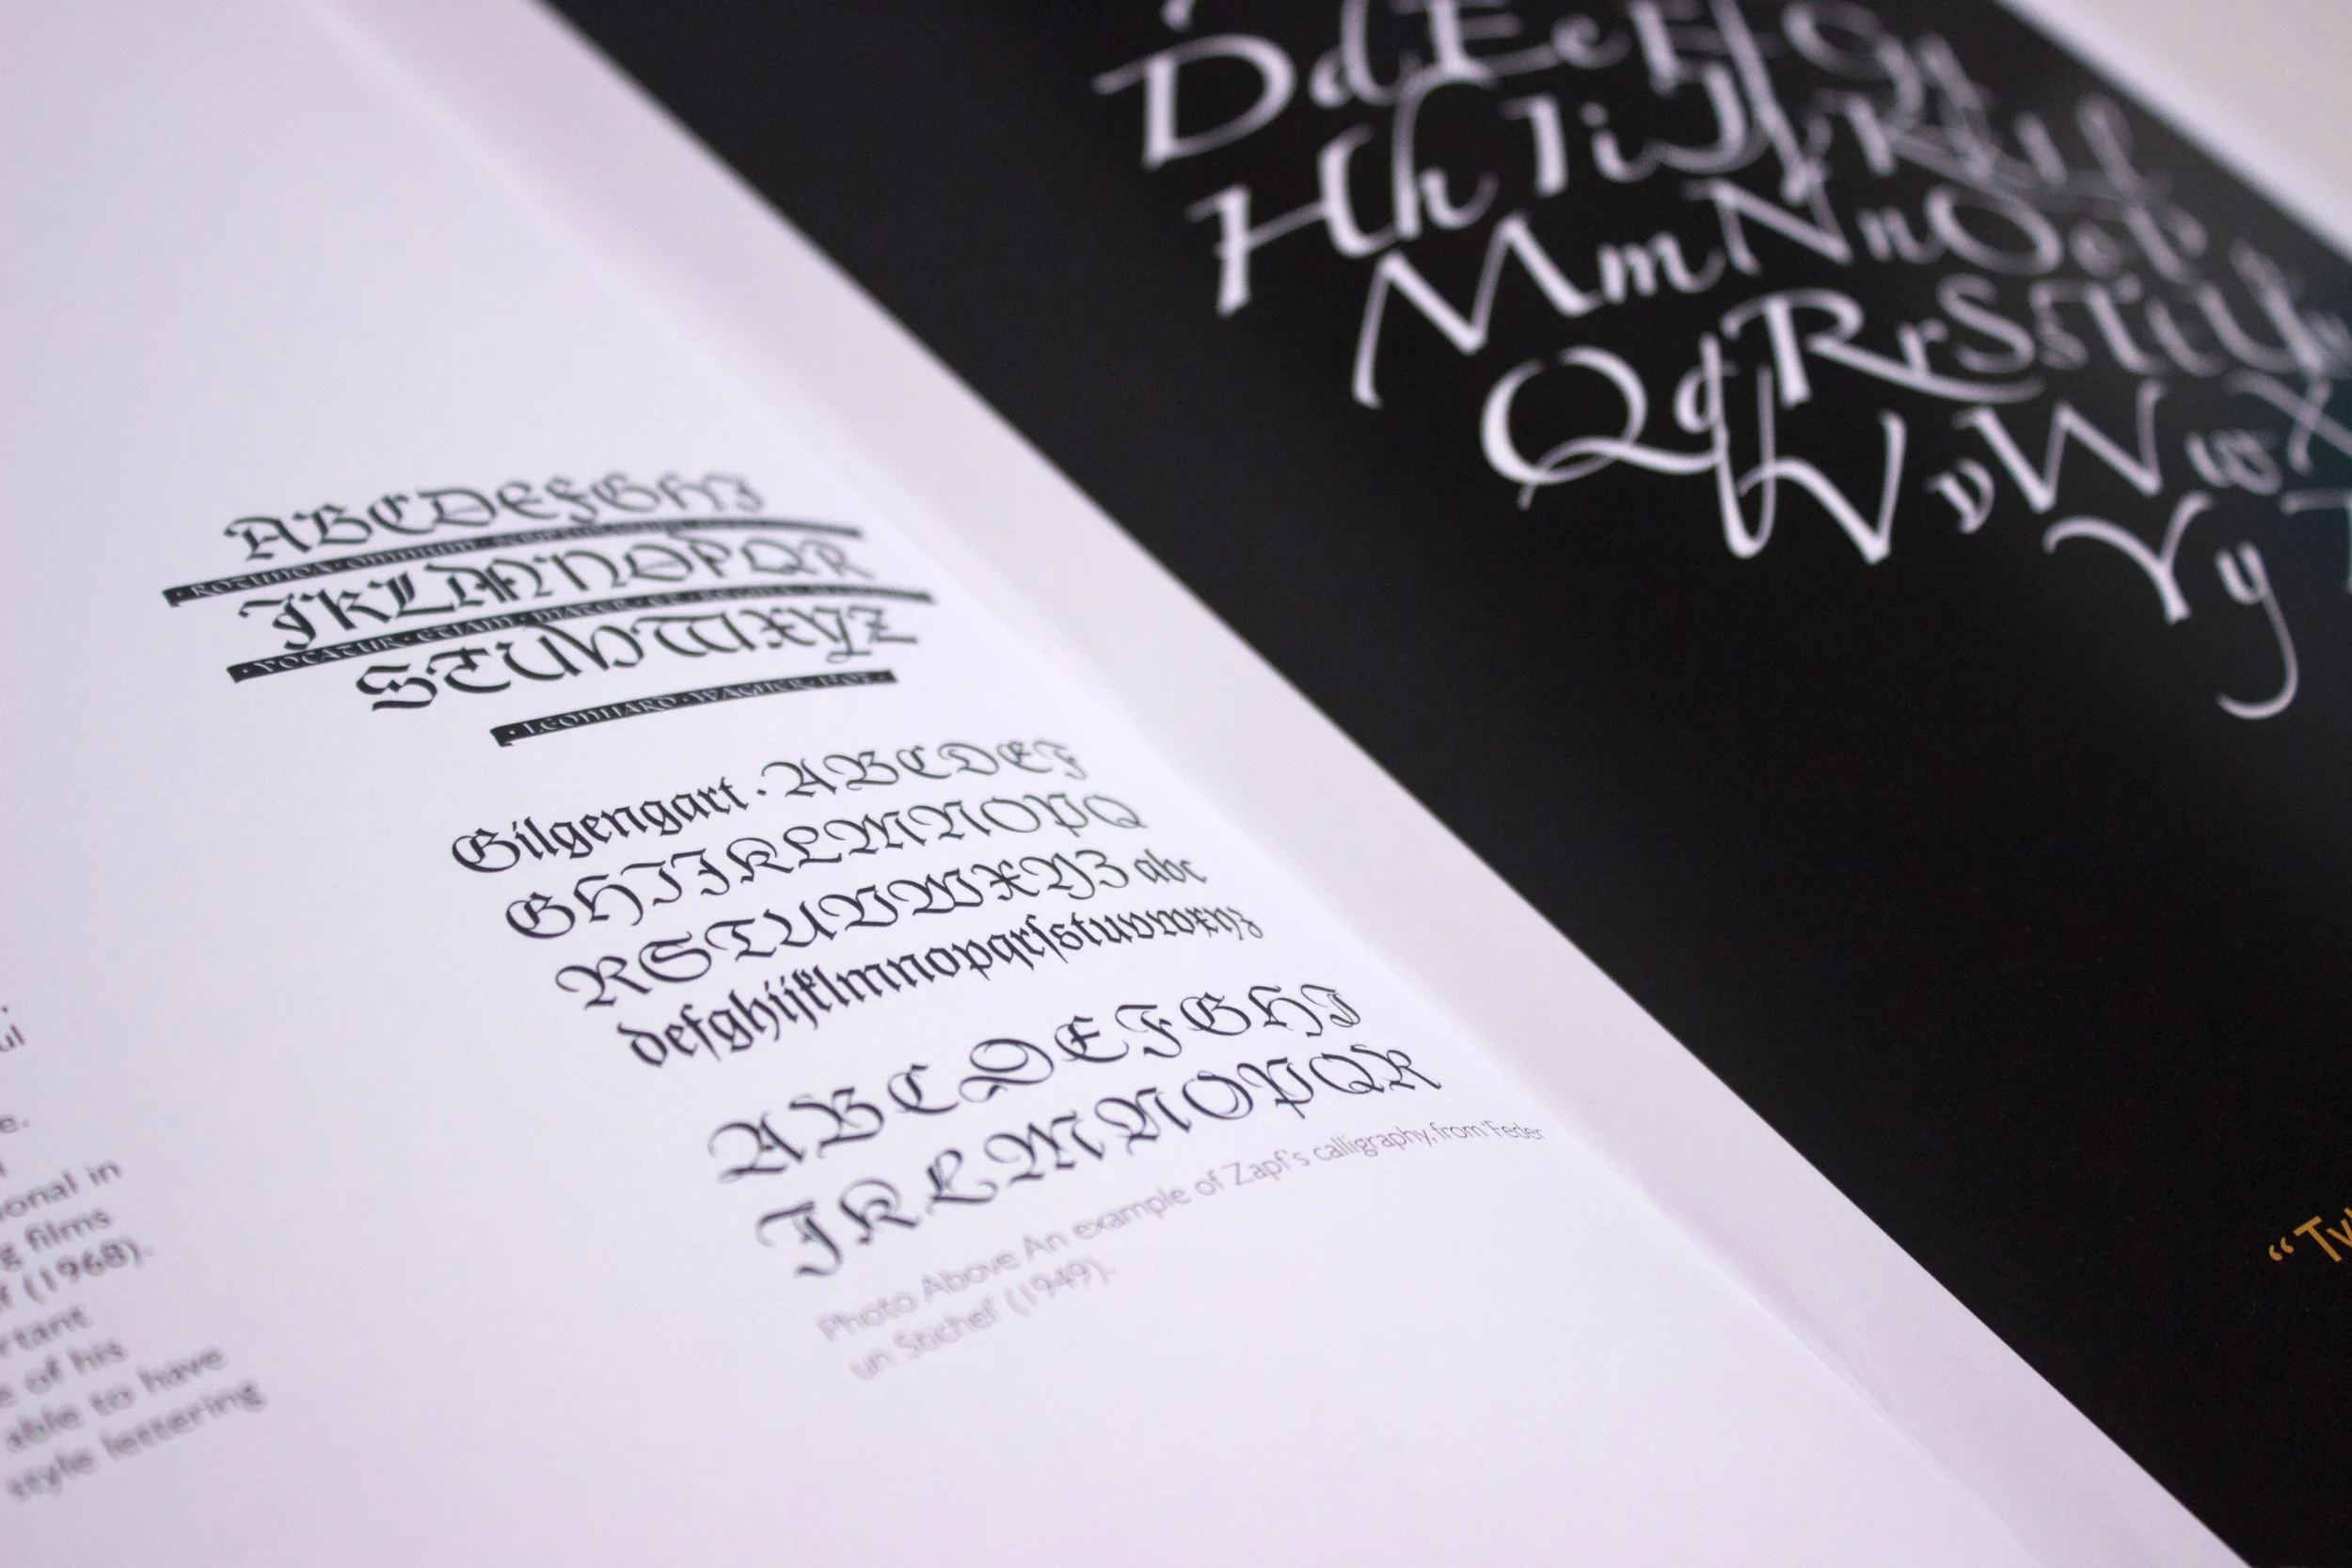 ul
e.
onal in
g films
f (1968).
rtant
e of his
able to have
style lettering
ABCDEFGHI
·ROTUNDA·OMNIUM·
JKLMNOPQR
·VOCATUR·ETIAM·MATER·ET·
STUVWXYZ
·LEONHARD·WAGNER·
Gilgengart·ABCDEF
GHIJKLMNOPQ
RSTUVWXYZ abc
defghijklmnopqrſstuvwxyz
ABCDEFGHI
JKLMNOPQR
Photo Above An example of Zapf's calligraphy, from 'Feder
un Stichel' (1949).
DdEeFfGg
HhIiJjKkLl
MmNnOoPp
QqRrSsTtUu
VvWwX
Yy
“Ty